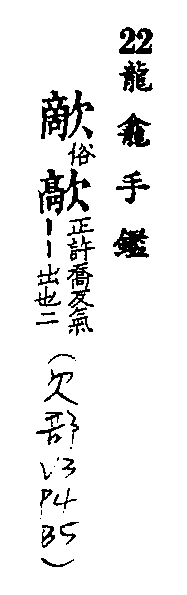 22龍龕手鑑
歒俗歊正許喬反氣
丨丨出也二
(欠部
V3
P4
B5)